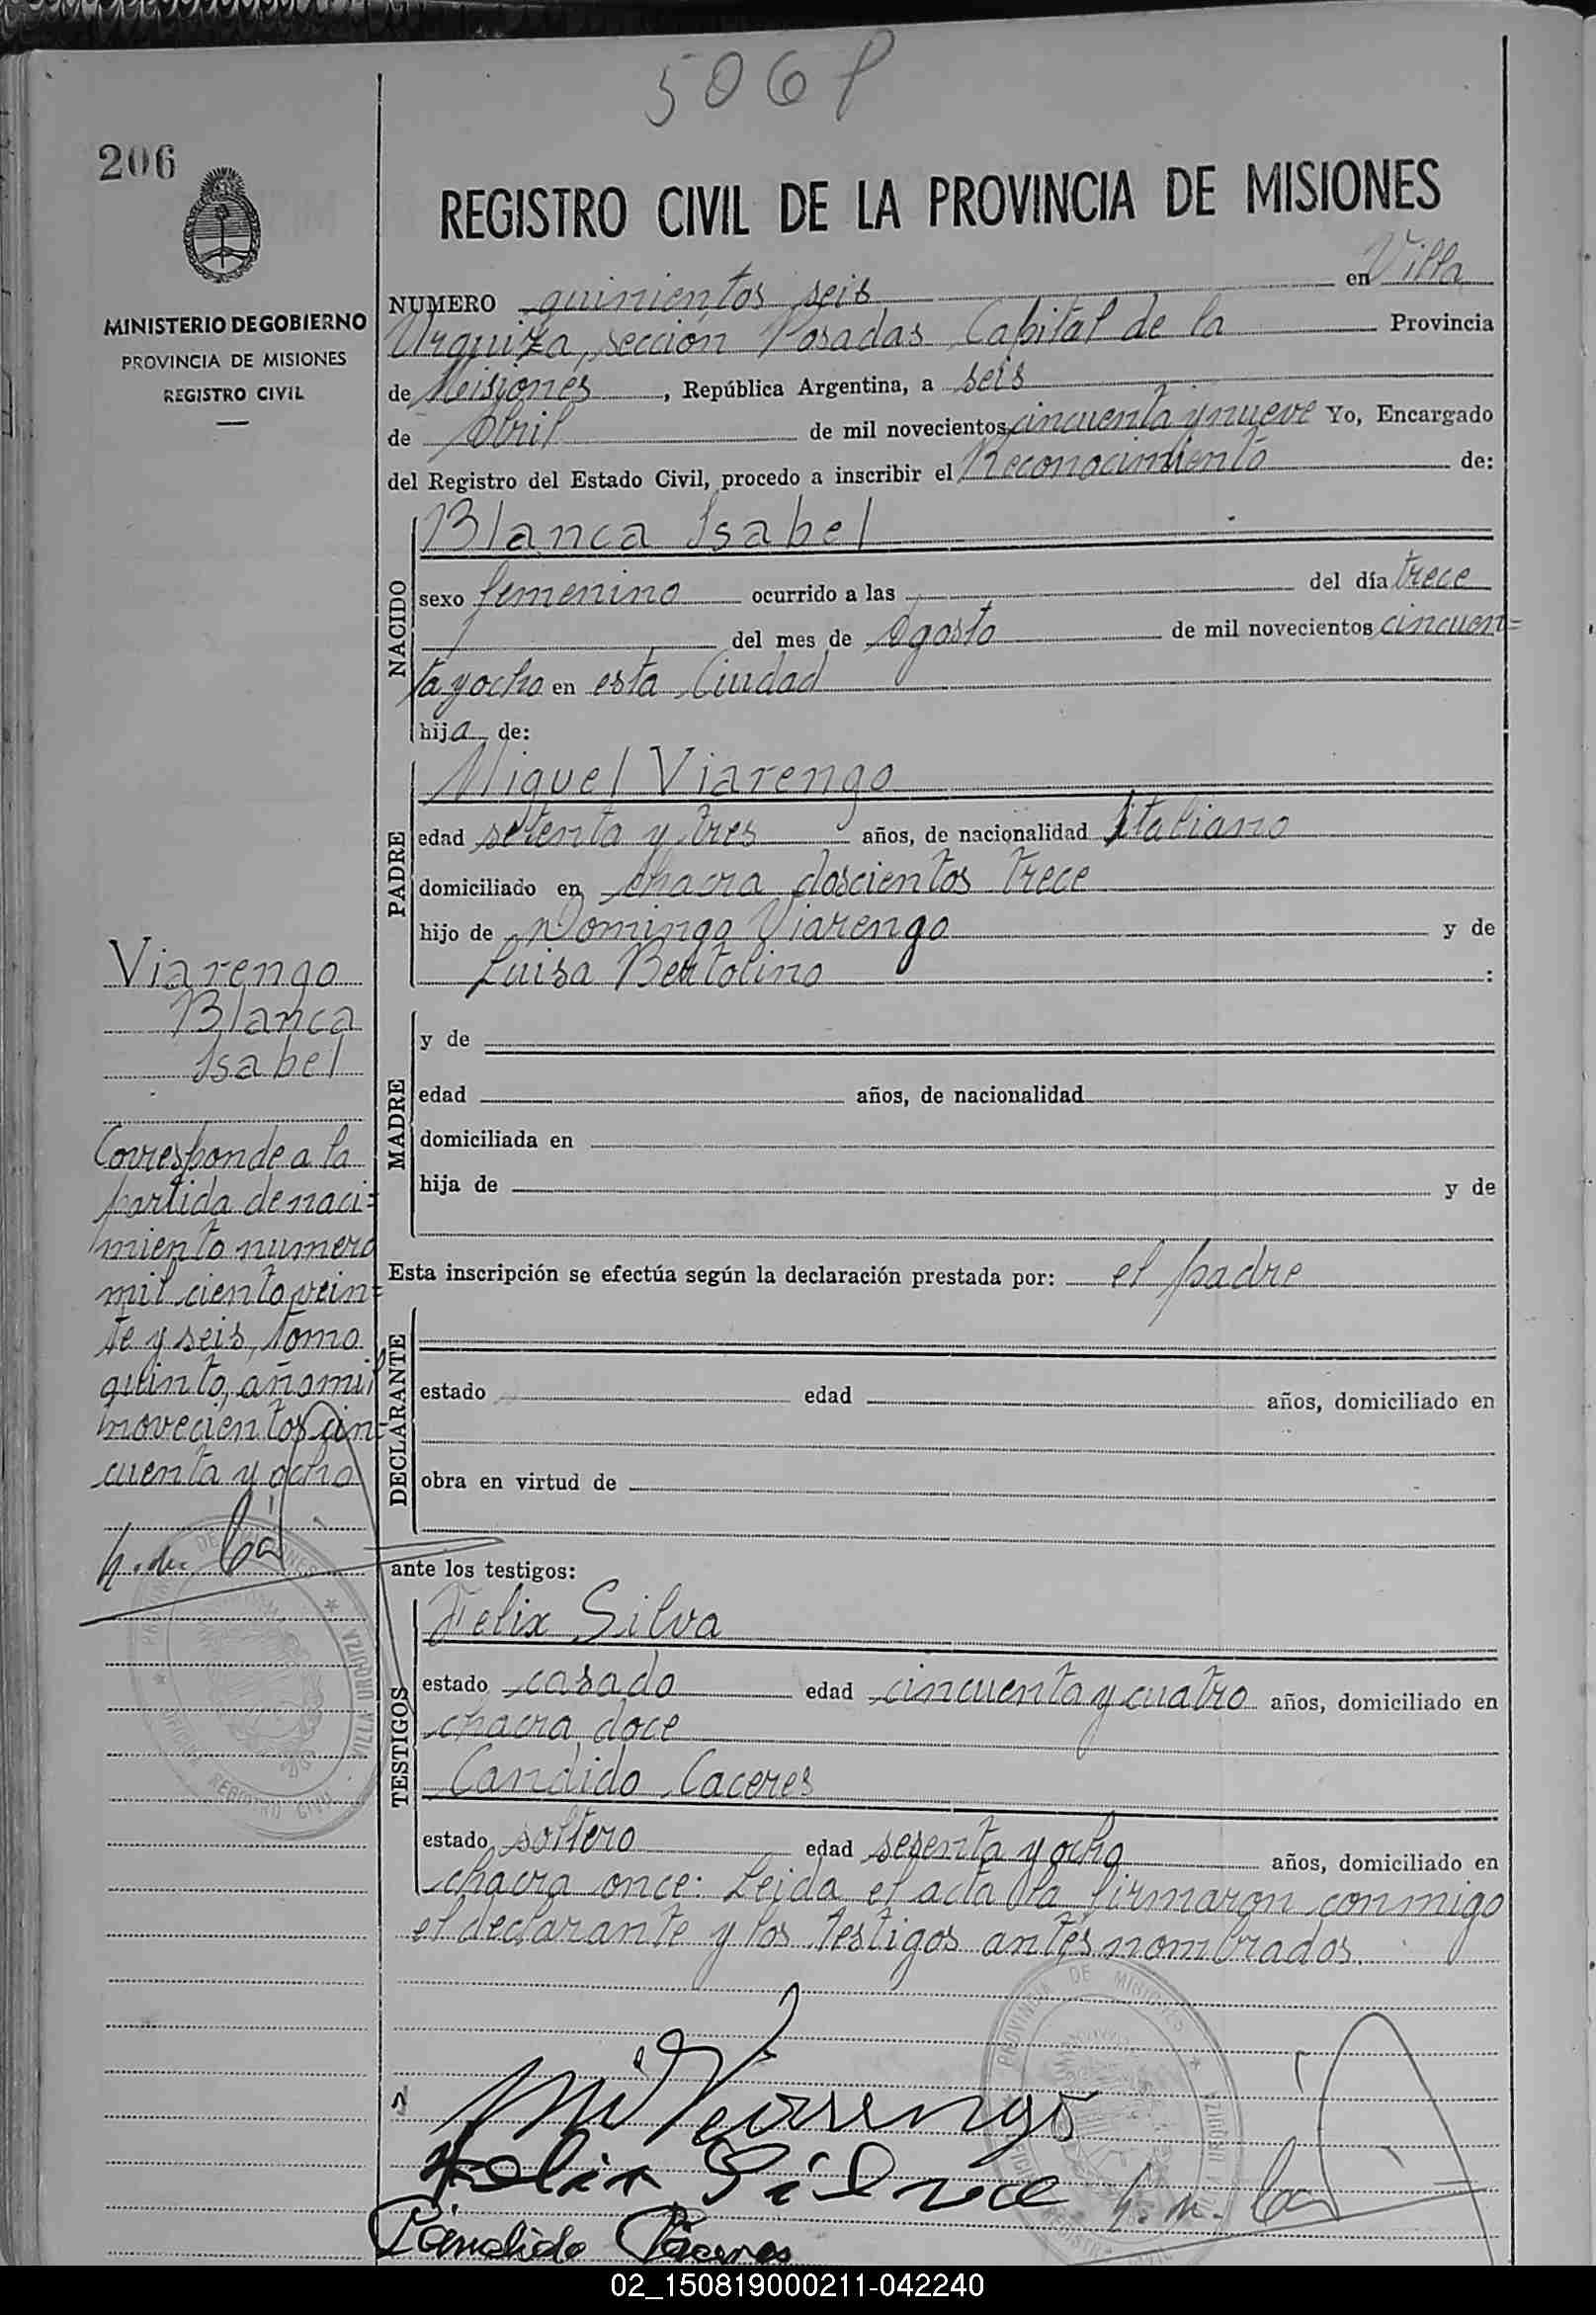 506 P
206
REGISTRO CIVIL DE LA PROVINCIA DE MISIONES
MINISTERIO DE GOBIERNO
PROVINCIA DE MISIONES
REGISTRO CIVIL
NUMERO quinientos seis en Villa
Urquiza, sección Posadas Capital de la Provincia
de Misiones, República Argentina, a seis
de Abril de mil novecientos cincuenta y nueve Yo, Encargado
del Registro del Estado Civil, procedo a inscribir el Reconocimiento de:
NACIDO
Blanca Isabel
sexo femenino ocurrido a las del día trece
del mes de Agosto de mil novecientos cincuen=
ta y ocho en esta Ciudad
hija de:
PADRE
Miguel Viarengo
edad setenta y tres años, de nacionalidad Italiano
domiciliado en chacra doscientos trece
hijo de Domingo Viarengo y de
Luisa Bertolino :
Viarengo
Blanca
Isabel
Corresponde a la
partida de naci=
miento numero
mil ciento vein=
te y seis, tomo
quinto, año mil
novecientos cin=
cuenta y ocho
MADRE
y de
edad años, de nacionalidad
domiciliada en
hija de y de
Esta inscripción se efectúa según la declaración prestada por: el padre
DECLARANTE
estado edad años, domiciliado en
obra en virtud de
ante los testigos:
TESTIGOS
Felix Silva
estado casado edad cincuenta y cuatro años, domiciliado en
chacra doce
Candido Caceres
estado soltero edad sesenta y ocho años, domiciliado en
chacra once: Leida el acta la firmaron conmigo
el declarante y los testigos antes nombrados.
PROVINCIA DE MISIONES
VILLA URQUIZA
REGISTRO CIVIL
Viarengo
Felix Silva
Cándido Caceres
02_150819000211-042240